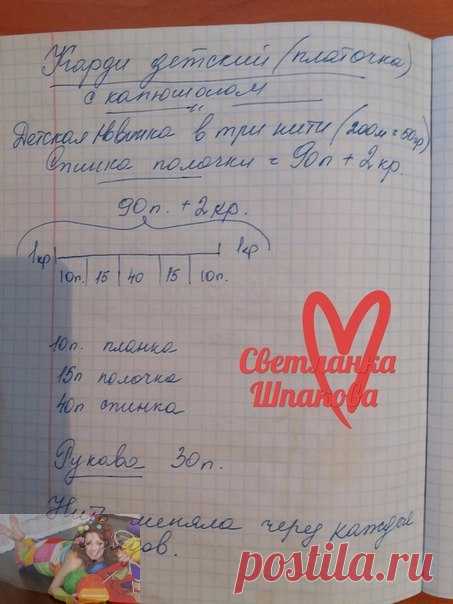 Карди детский (платочка)
с капюшоном
Детская Новинка в три нити (200м = 50гр)
Спинка полочки = 90п + 2кр.
90п. + 2кр.
1кр 1кр
10п. 15 40 15 10п.
10п. планка
15п полочка
40п спинка
Светланка
Шпакова
Рукава 30п.
меняла через каждые
postila.ru